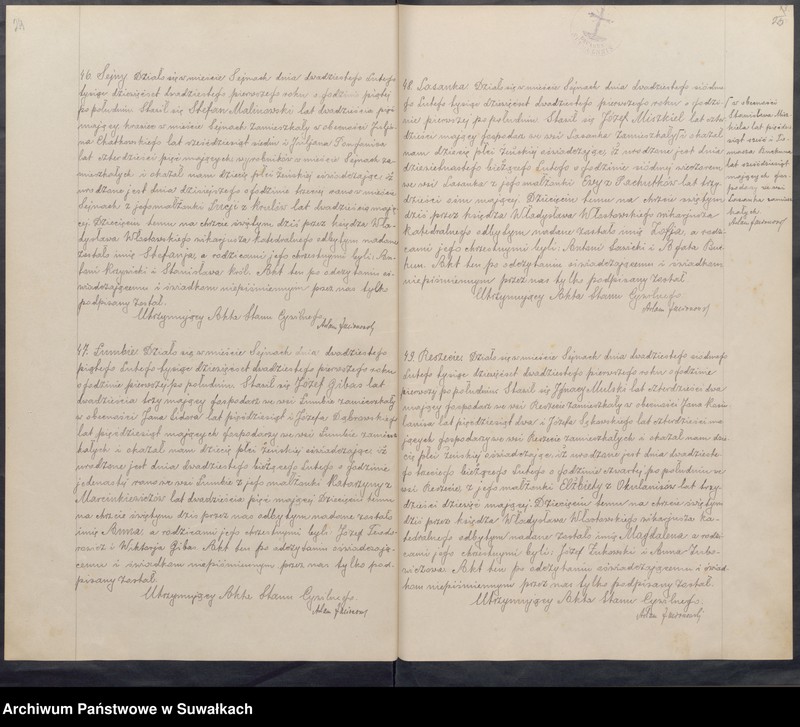 46. Sejny Działo się w mieście Sejnach dnia dwudziestego Lutego
tysiąc dziewięćset dwudziestego pierwszego roku o godzinie piątej
po południu. Stawił się Stefan Malinowski lat dwadzieścia pięć
mający krawiec w mieście Sejnach zamieszkały w obecności Julja-
na Chatkowskiego lat sześćdziesiąt siedm i Juljana
lat czterdzieści pięć mających, wyrobników w mieście Sejnach za-
mieszkałych i okazał nam dziecię płci żeńskiej oświadczając iż
urodzone jest dnia dzisiejszego o godzinie trzeciej rano w mieście
Sejnach z jego małżonki z lat dwadzieścia mają-
cej. Dziecięciu temu na chrzcie świętym dziś przez księdza Wła-
dysława Włostowskiego wikarjusza Katedralnego odbytym nadane
zostało imię Stefanja a rodzicami jego chrzestnymi byli: An-
toni i Stanisława Król. Akt ten po odczytaniu oś-
wiadczającemu i świadkom niepiśmiennym przez nas tylko
podpisany został.
Utrzymujący Akta Stanu Cywilnego
Adam
47. Lumbie Działo się w mieście Sejnach dnia dwudziestego
piątego Lutego tysiąc dziewięćset dwudziestego pierwszego roku
o godzinie pierwszej po południu. Stawił się Józef Gibas lat
dwadzieścia trzy mający gospodarz we wsi Lumbie zamieszkały
w obecności Jana Sidora lat pięćdziesiąt i Józefa Dąbrowskiego
lat pięćdziesiąt mających gospodarzy we wsi Lumbie zamiesz-
kałych i okazał nam dziecię płci żeńskiej oświadczając iż
urodzone jest dnia dwudziestego bieżącego Lutego o godzinie
jedenastej rano we wsi Lumbie z jego małżonki Katarzyny z
Marcinkiewiczów lat dwadzieścia pięć mającej. Dziecięciu temu
na chrzcie świętym dziś przez nas odbytym nadane zostało
imię Anna a rodzicami jego chrzestnymi byli: Józef Teodo-
rowicz i Wiktorja Giba. Akt ten po odczytaniu oświadczają-
cemu i świadkom niepiśmiennym przez nas tylko pod-
pisany został.
Utrzymujący Akta Stanu Cywilnego
Adam
48. Łasanka Działo się w mieście Sejnach dnia dwudziestego siódme-
go Lutego tysiąc dziewięćset dwudziestego pierwszego roku o godzi-
nie pierwszej po południu. Stawił się Józef Miszkiel lat czter-
dzieści mający gospodarz we wsi Łasanka zamieszkały i okazał
nam dziecię płci żeńskiej oświadczając iż urodzone jest dnia
dziewiętnastego bieżącego Lutego o godzinie siódmej wieczorem
we wsi Łasanka z jego małżonki Ewy z Pachutków lat trzy-
dzieści ośm mającej. Dziecięciu temu na chrzcie świętym
dziś przez księdza Władysława Włostowskiego wikarjusza
Katedralnego odbytym nadane zostało imię Zofja a rodzi-
cami jego chrzestnymi byli: Antoni i Agata Buch-
Akt ten po odczytaniu oświadczającemu i świadkom
niepiśmiennym przez nas tylko podpisany został
Utrzymujący Akta Stanu Cywilnego
Adam
w obecności
Stanisława Misz-
kiela lat pięćdzie-
siąt sześć i To-
masza
lat sześćdziesiąt
mających gos-
podarzy ze wsi
Łasanka zamiesz-
kałych.
Adam
49. Działo się w mieście Sejnach dnia dwudziestego siódmego
Lutego tysiąc dziewięćset dwudziestego pierwszego roku o godzinie
pierwszej po południu. Stawił się Ignacy Mulski lat czterdzieści dwa
mający gospodarz we wsi zamieszkały w obecności Jana
lat pięćdziesiąt dwa i Józefa lat czterdzieści ma-
jących gospodarzy we wsi zamieszkałych i okazał nam dzie-
cię płci żeńskiej oświadczając iż urodzone jest dnia dwudzieste-
go trzeciego bieżącego Lutego o godzinie czwartej po południu we
wsi z jego małżonki Elżbiety z Okulanisów lat trzy-
dzieści dziewięć mającej. Dziecięciu temu na chrzcie świętym
dziś przez księdza Władysława Włostowskiego wikarjusza ka-
tedralnego odbytym nadane zostało imię Magdalena a rodzi-
cami jego chrzestnymi byli: Józef Żukowski i Anna
Akt ten po odczytaniu oświadczającemu i świad-
kom niepiśmiennym przez nas tylko podpisany został.
Utrzymujący Akta Stanu Cywilnego
Adam
Archiwum Państwowe w Suwałkach